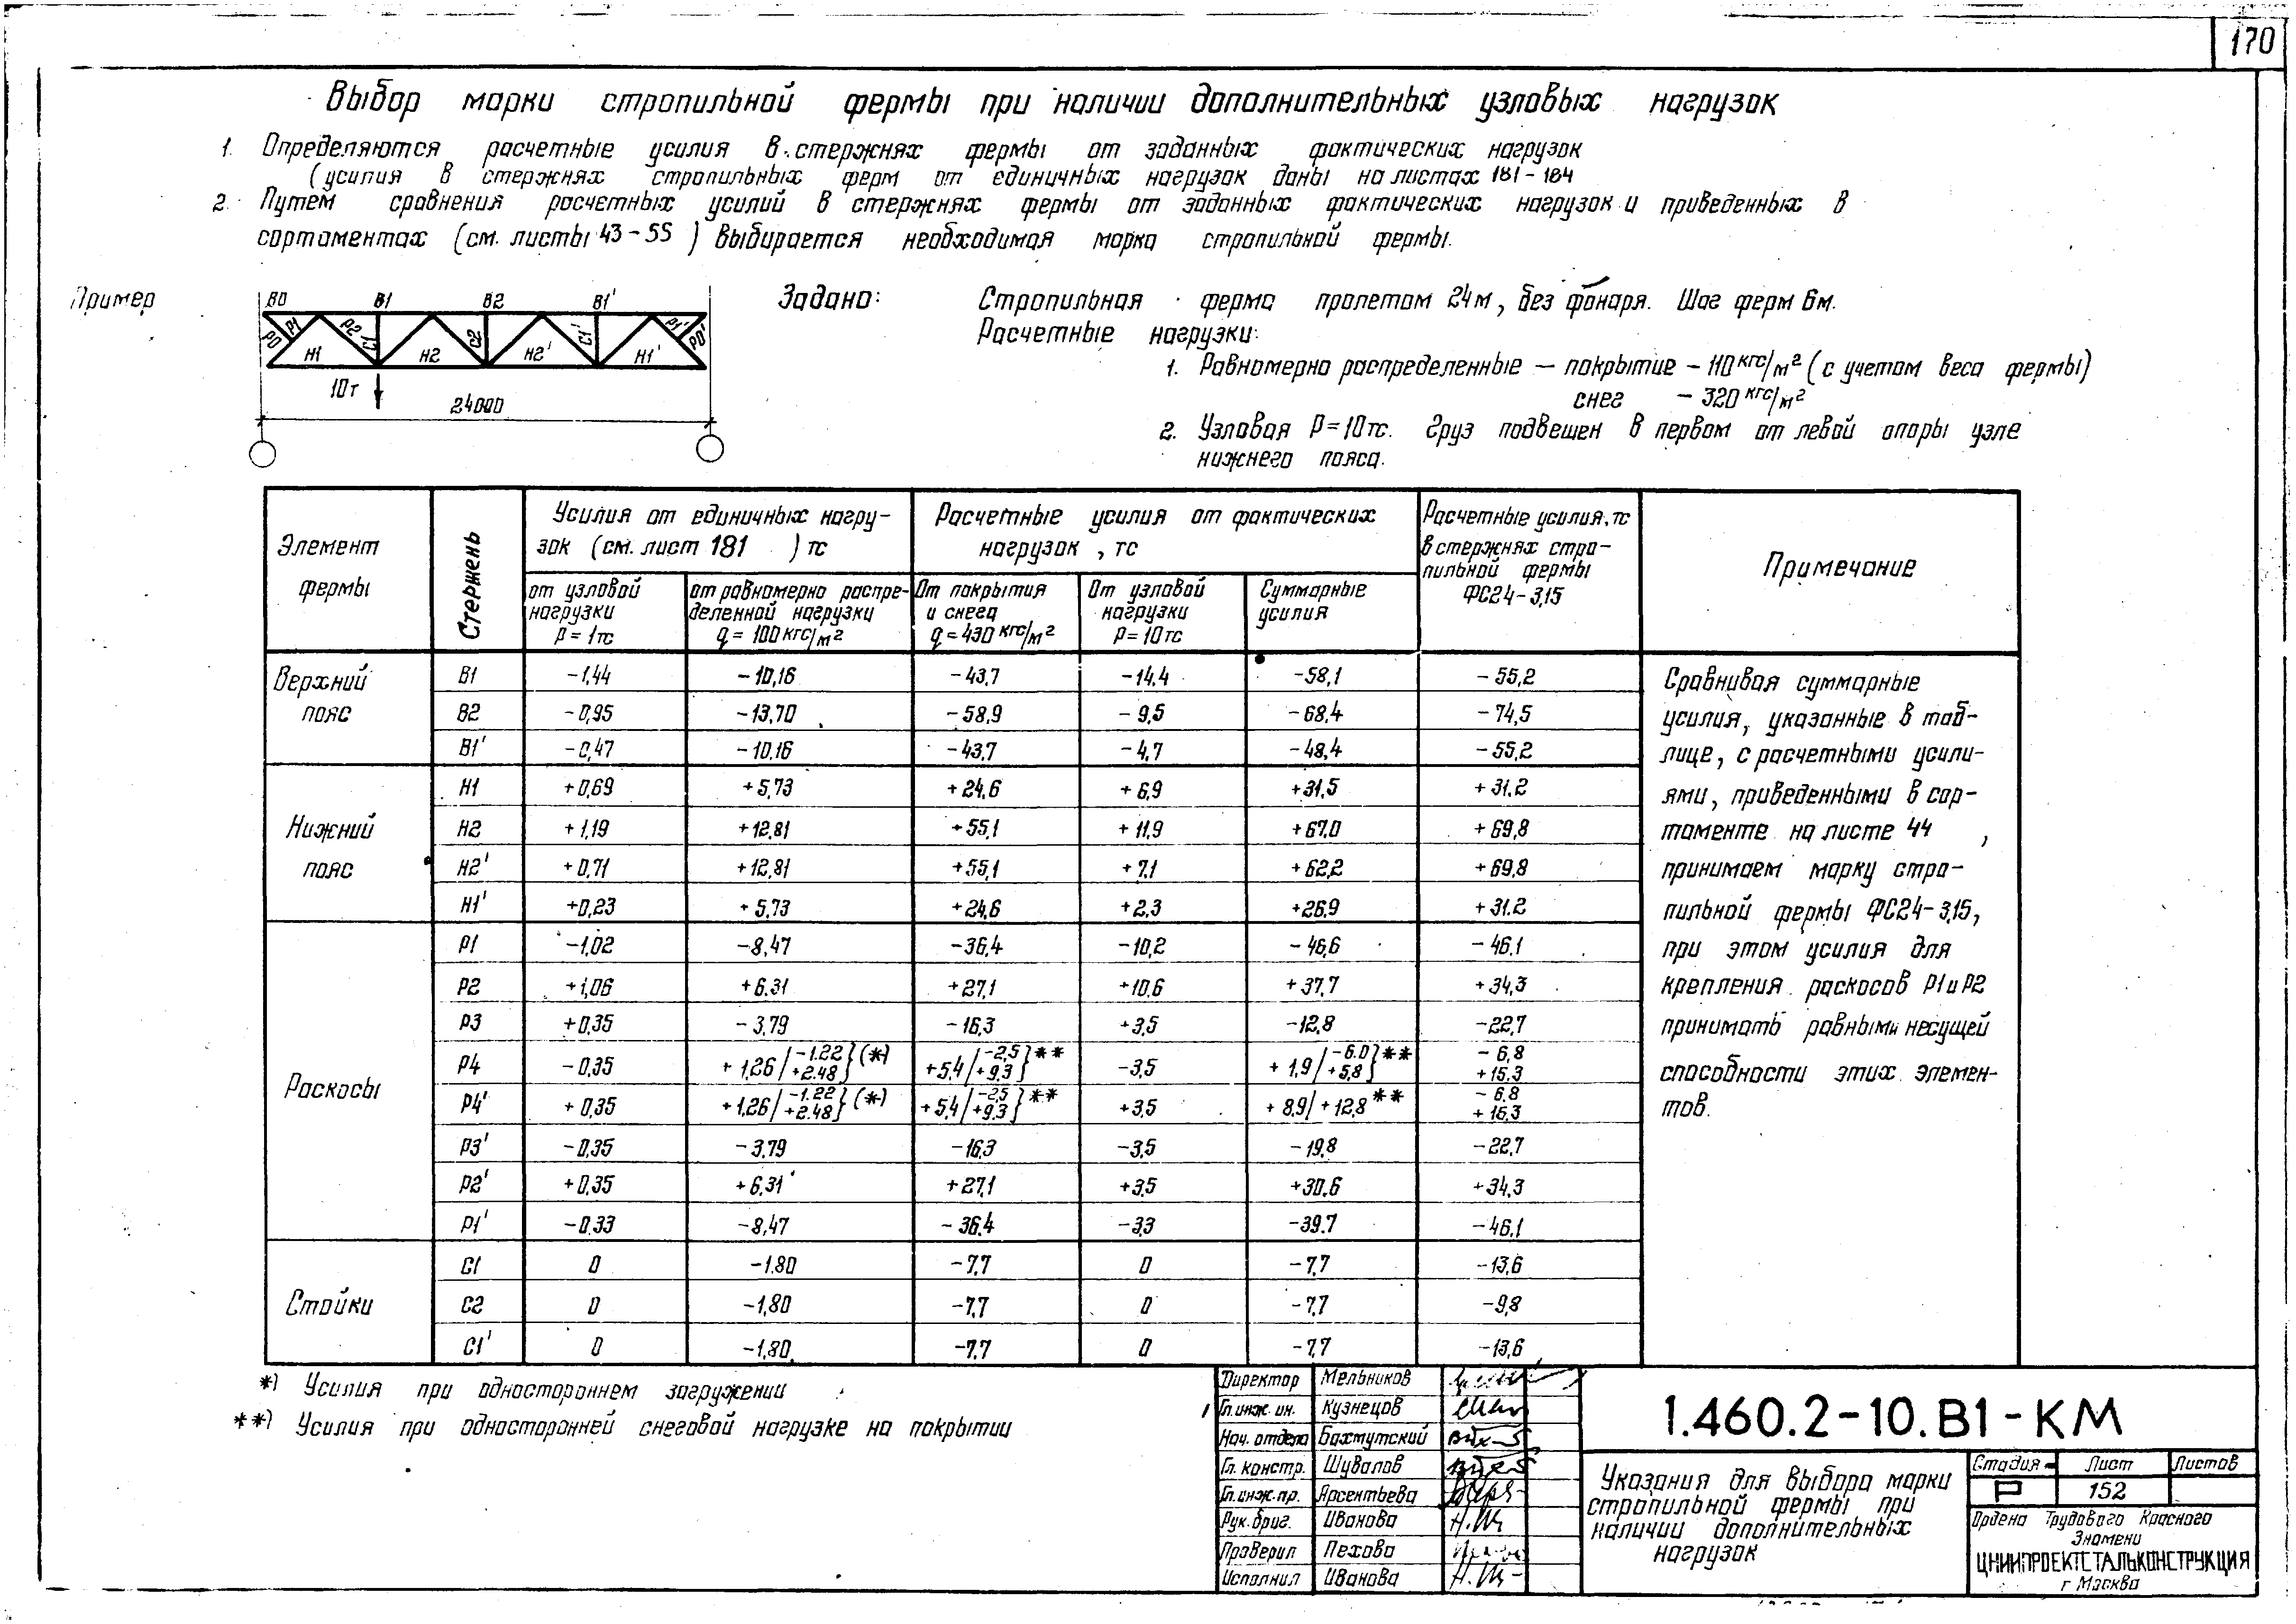 170
Выбор марки стропильной фермы при наличии дополнительных узловых нагрузок
1. Определяются расчетные усилия в стержнях фермы от заданных фактических нагрузок
(усилия в стержнях стропильных ферм от единичных нагрузок даны на листах 181-184
2. Путем сравнения расчетных усилий в стержнях фермы от заданных фактических нагрузок и приведенных в
сортаментах (см. листы 43-55 ) выбирается необходимая марка стропильной фермы.
Пример
В0 В1 В2 В1'
Р0 Р1 Р2 С1 С2 С1' Р1' Р0'
Н1 Н2 Н2' Н1'
10т
24000
Задано: Стропильная ферма пролетом 24м, без фонаря. Шаг ферм 6м.
Расчетные нагрузки:
1. Равномерно распределенные — покрытие - 110 кгс/м² (с учетом веса фермы)
снег - 320 кгс/м²
2. Узловая Р=10тс. Груз подвешен в первом от левой опоры узле
нижнего пояса.
Элемент фермы
Стержень
Усилия от единичных нагру-
зок (см. лист 181 ) тс
от узловой нагрузки Р=1тс
от равномерно распре-
деленной нагрузки q=100кгс/м²
Расчетные усилия от фактических
нагрузок, тс
От покрытия и снега q=430 кгс/м²
От узловой нагрузки Р=10тс
Суммарные усилия
Расчетные усилия, тс
в стержнях стро-
пильной фермы
ФС24-3,15
Примечание
Верхний пояс
В1 -1,44 -10,16 -43,7 -14,4 -58,1 -55,2
В2 -0,95 -13,70 -58,9 -9,5 -68,4 -74,5
В1' -0,47 -10,16 -43,7 -4,7 -48,4 -55,2
Нижний пояс
Н1 +0,69 +5,73 +24,6 +6,9 +31,5 +31,2
Н2 +1,19 +12,81 +55,1 +11,9 +67,0 +69,8
Н2' +0,71 +12,81 +55,1 +7,1 +62,2 +69,8
Н1' +0,23 +5,73 +24,6 +2,3 +26,9 +31,2
Раскосы
Р1 -1,02 -8,47 -36,4 -10,2 -46,6 -46,1
Р2 +1,06 +6,31 +27,1 +10,6 +37,7 +34,3
Р3 +0,35 -3,79 -16,3 +3,5 -12,8 -22,7
Р4 -0,35 +1,26/-1,22 +2,48}(*) +5,4/-2,5 +9,3}** -3,5 +1,9/-6,0 +5,8}** -6,8 +15,3
Р4' +0,35 +1,26/-1,22 +2,48}(*) +5,4/-2,5 +9,3}** +3,5 +8,9/+12,8** -6,8 +16,3
Р3' -0,35 -3,79 -16,3 -3,5 -19,8 -22,7
Р2' +0,35 +6,31 +27,1 +3,5 +30,6 +34,3
Р1' -0,33 -8,47 -36,4 -3,3 -39,7 -46,1
Стойки
С1 0 -1,80 -7,7 0 -7,7 -13,6
С2 0 -1,80 -7,7 0 -7,7 -9,8
С1' 0 -1,80 -7,7 0 -7,7 -13,6
Сравнивая суммарные
усилия, указанные в таб-
лице, с расчетными усили-
ями, приведенными в сор-
таменте на листе 44 ,
принимаем марку стро-
пильной фермы ФС24-3,15,
при этом усилия для
крепления раскосов Р1 и Р2
принимать равными несущей
способности этих элемен-
тов.
*) Усилия при одностороннем загружении
**) Усилия при односторонней снеговой нагрузке на покрытии
Директор Мельников
Гл. инж. ин. Кузнецов
Нач. отдела Бахмутский
Гл. констр. Шувалов
Гл. инж. пр. Арсентьева
Рук. бриг. Иванова
Проверил Пехова
Исполнил Иванова
1.460.2-10.В1-КМ
Указания для выбора марки
стропильной фермы при
наличии дополнительных
нагрузок
Стадия Лист Листов
Р 152
Ордена Трудового Красного
Знамени
ЦНИИПРОЕКТСТАЛЬКОНСТРУКЦИЯ
г Москва